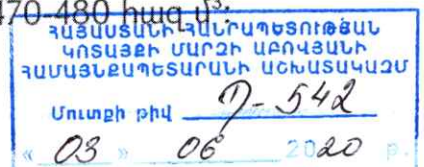 470-480 հազ մ³:
ՀԱՅԱՍՏԱՆԻ ՀԱՆՐԱՊԵՏՈՒԹՅԱՆ
ԿՈՏԱՅՔԻ ՄԱՐԶԻ ԱԲՈՎՅԱՆԻ
ՀԱՄԱՅՆՔԱՊԵՏԱՐԱՆԻ ԱՇԽԱՏԱԿԱԶՄ
Մուտքի թիվ Դ-542
« 03 » 06 2020 թ.